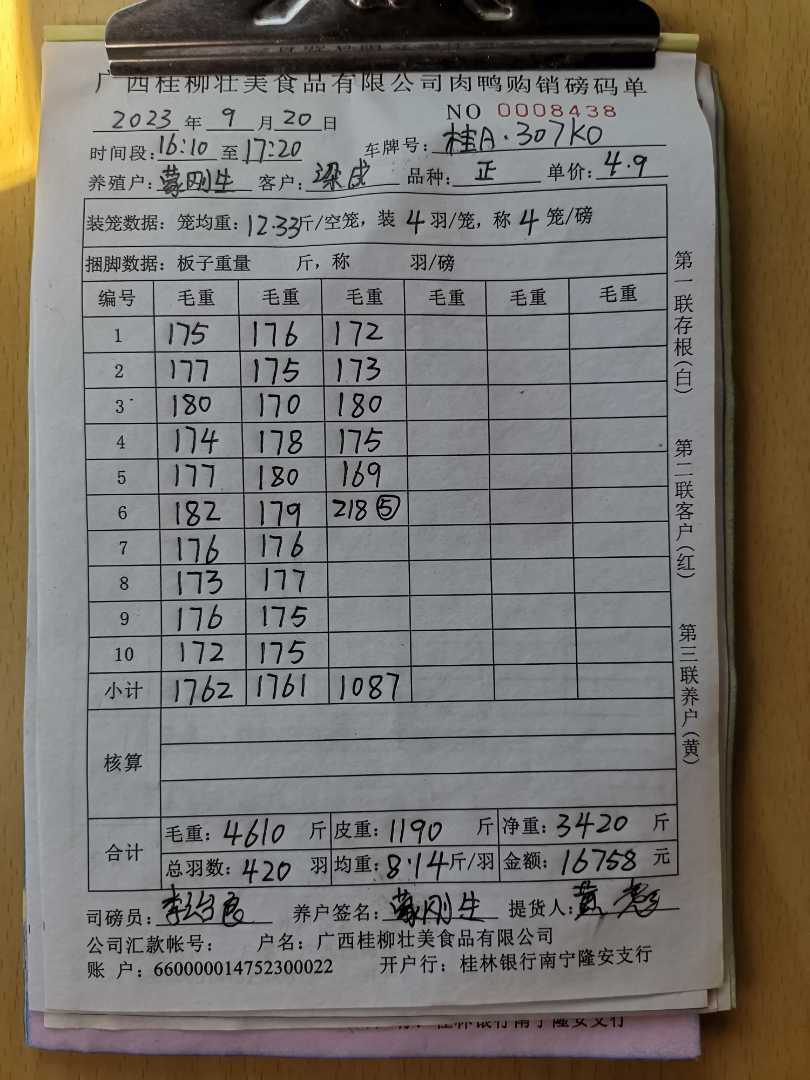 广西桂柳壮美食品有限公司肉鸭购销磅码单
2023年9月20日 NO 0008438
时间段:16:10至17:20 车牌号:桂A·307K0
养殖户:蒙刚生 客户:梁成 品种:正 单价:4.9
装笼数据:笼均重:12.33斤/空笼,装4羽/笼,称4笼/磅
捆脚数据:板子重量 斤,称 羽/磅
编号 毛重 毛重 毛重 毛重 毛重 毛重
1 175 176 172
2 177 175 173
3 180 170 180
4 174 178 175
5 177 180 169
6 182 179 218⑤
7 176 176
8 173 177
9 176 175
10 172 175
小计 1762 1761 1087
核算
合计 毛重:4610斤 皮重:1190斤 净重:3420斤
总羽数:420羽 均重:8.14斤/羽 金额:16758元
司磅员: 养户签名:蒙刚生 提货人:黄
公司汇款帐号: 户名:广西桂柳壮美食品有限公司
账 户:660000014752300022 开户行:桂林银行南宁隆安支行
第一联存根(白)
第二联客户(红)
第三联养户(黄)